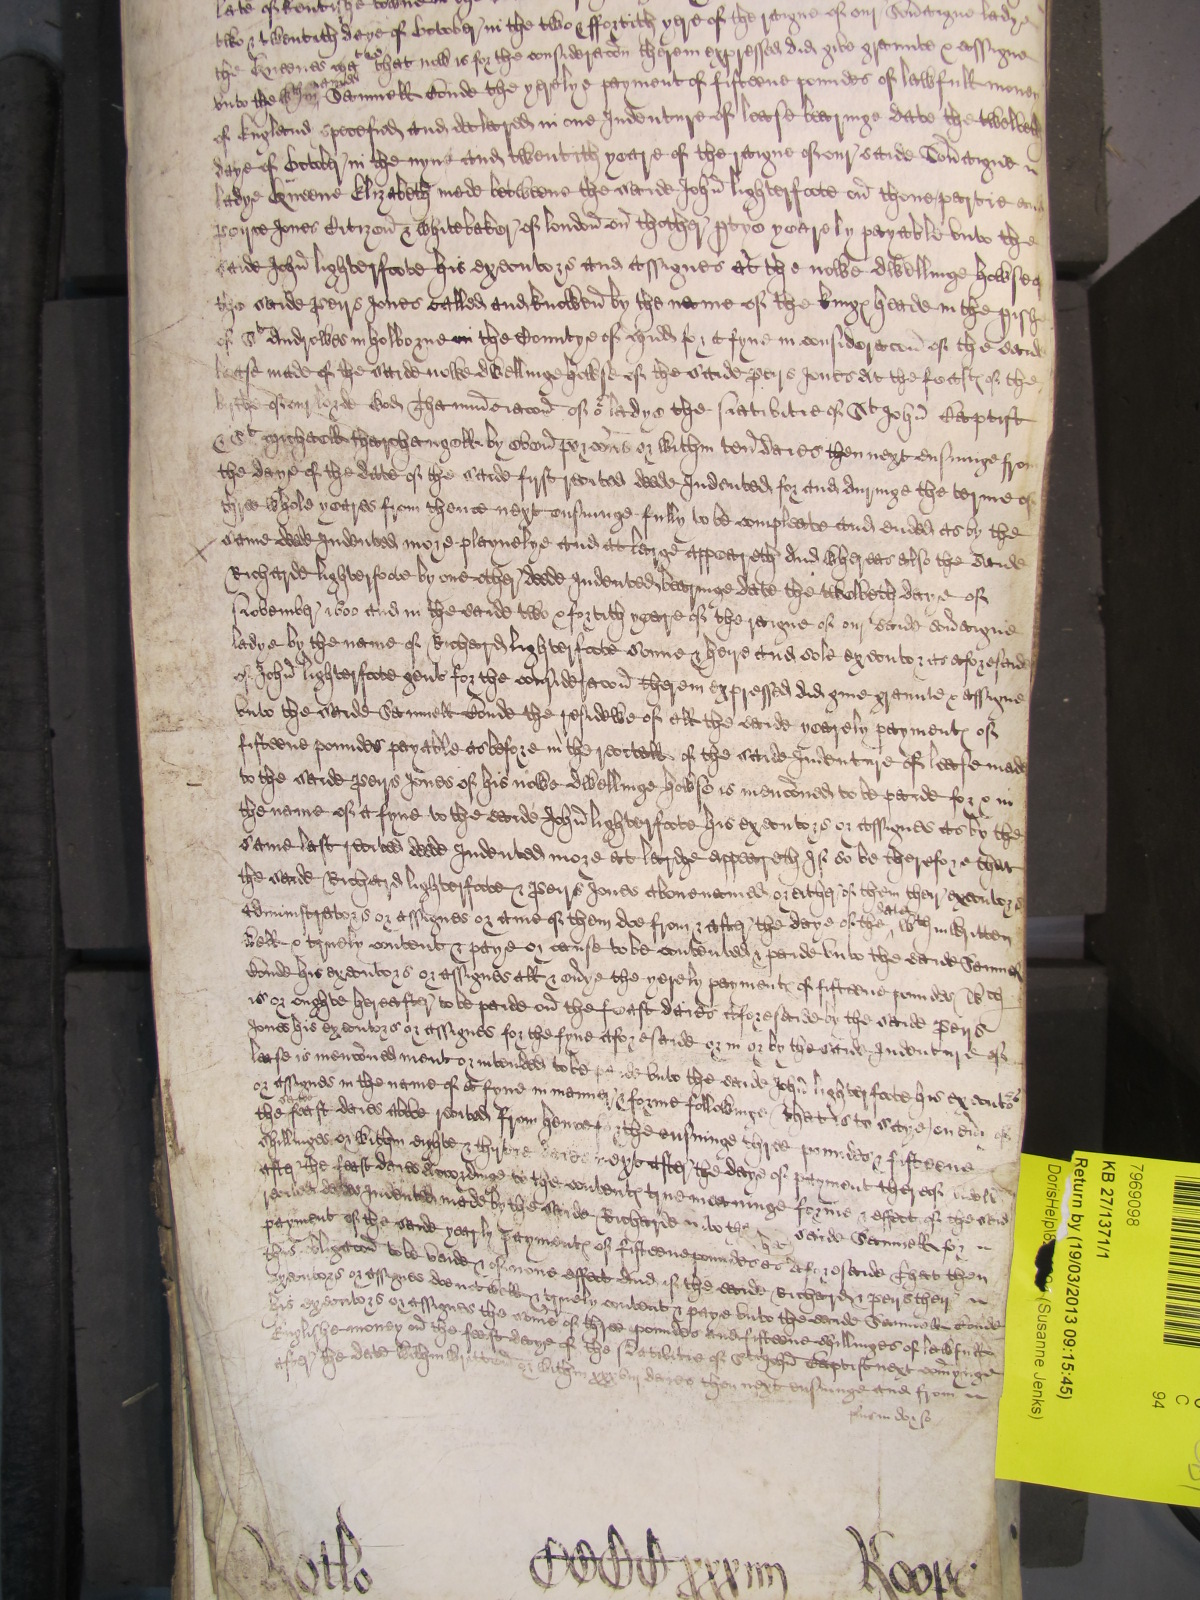 late of Kentishe towne in the
two & twentith daye of October in the two & fortith yere of the raigne of our Soveraigne ladye
the Queenes that now is for the consideracon therein expressed did give graunte & assigne
unto the Samuell Conde the yerelye payment of fifteene poundes of lawfull money
of England specefied and declared in one Indenture of lease bearinge date the twelveth
daye of October in the nyne and twentith yeare of the raigne of our saide Soveraigne
ladye Queene Elizabeth made betweene the saide John lighterfoote on thone partie and
peirce Jones Citizen & Whitebaker of london on thother ptye yearely payable unto the
saide John lighterfoote his executors and assignes at the nowe dwellinge howse of
the saide peirs Jones called and knowen by the name of the kings heade in the pish
of St Androwes in holborne in the Countye of Midd for a fyne in consideracon of the saide
lease made of the saide nowe dwellinge howse of the saide peirs Jones at the feasts of the
birthe of our lorde God Thannunciacon of or ladye the Nativitie of St John Baptist
& St Michaell tharchangell by even porcons or within ten daies then next ensuinge from
the daye of the date of the saide first recited deede Indented for and duringe the terme of
three whole yeares from thence next ensuinge fully to be compleate and ended as by the
same deede Indented more playnelye and at large appeareth And whereas also the saide
Richarde lighterfoote by one other deede Indented bearinge date the twelveth daye of
November 1600 and in the saide two & fortith yeare of the raigne of our saide soveraigne
ladye by the name of Richard lighterfoote sonne & heire and sole executor as aforesaide
of John lighterfoote gent for the consideracon therein expressed did give graunte & assigne
unto the saide Samuell Conde the residewe of all the saide yearely payments of
fifteene poundes payable as before in the recitall of the saide Indenture of lease made
to the saide peirs Jones of his nowe dwellinge howse is menconed to be paide for & in
the name of a fyne to the saide John lighterfoote his executors or assignes as by the
same last recited deede Indented more at lardge appeareth If so be therefore that
the saide Richard lighterfoote & peirs Jones abovenamed or either of them their executors
administrators or assignes or anie of them doe from & after the daye of the date wthin written
well & truely content & paye or cause to be contented & paide unto the saide Samuell
Conde his executors or assignes all & everye the yerely payments of fifteene poundes wch
is or oughte hereafter to be paide on the feast daies aforesaide by the saide peirs
Jones his executors or assignes for the fyne aforesaide or in or by the saide Indenture of
lease is menconed ment or intended to be paide unto the saide John lighterfoote his executors
or assignes in the name of a fyne in manner & forme followinge That is to saye on everie of
the saide feast daies above recited from hence for the ensuinge three poundes & fifteene
shillinges or within eighte & thirtie daies next after the daye of payment thereof
after the feast daies accordinge to the contents true meaninge forme & effect of the said
recited deedes Indented made by the saide Richarde unto the saide Samuell for
payment of the saide yearly payments of fifteene poundes as aforesaide That then
this obligacon to be voide & of none effect And if the saide Richard & peirs their
executors or assignes doe not well & truely content & paye unto the saide Samuell Conde
his executors or assignes the some of three poundes and fifteene shillinges of lawfull
Englishe money on the feast daye of the Nativitie of St John Baptist next comynge
after the date within written or within xxxviii daies then next ensuinge and from
plus in dorso
Rotlo CCCC xxxiiii Roope
79690998
KB 27/1371/1
Return by (19/03/2013 09:15:45)
(Susanne Jenks)
C
94